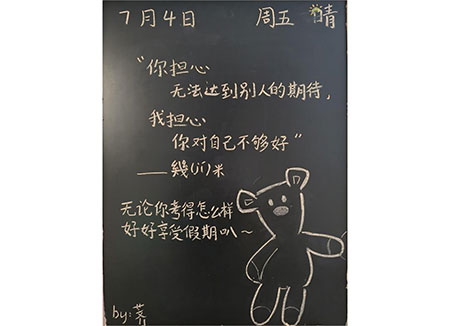 7月4日 周五 晴
“你担心
无法达到别人的期待，
我担心
你对自己不够好”
——幾(jǐ)米
无论你考得怎么样
好好享受假期叭～
by:荞